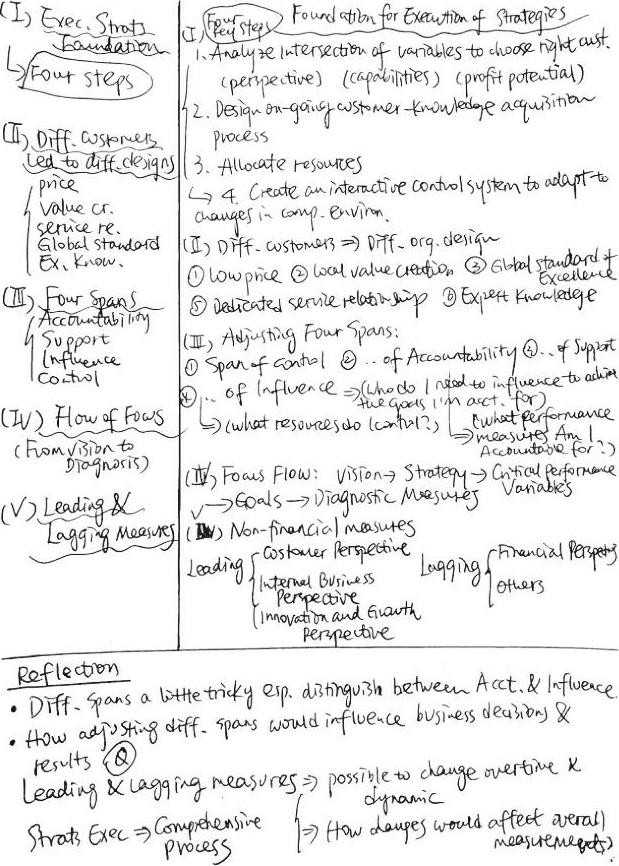 (I) Exec. Strats
Foundation
Four steps
(II) Diff. customers
Led to diff. designs
price
Value cr.
service re.
Global standard
Ex. Know.
(III) Four Spans
Accountability
Support
Influence
Control
(IV) Flow of Focus
(From vision to
Diagnosis)
(V) Leading &
Lagging Measures
I) Four key steps Foundation for Execution of Strategies
1. Analyze intersection of variables to choose right cust.
(perspective) (capabilities) (profit potential)
2. Design on-going customer-knowledge acquisition
process
3. Allocate resources
↳ 4. Create an interactive control system to adapt to
changes in comp. environ.
(II) Diff. customers ⇒ Diff. org. design
① Low price ② Local value creation ③ Global standard of
Excellence
⑤ Dedicated service relationship ⑥ Expert Knowledge
(III) Adjusting Four Spans:
① Span of control ② .. of Accountability ④ .. of Support
.. of Influence ⇒ (who do I need to influence to achieve
the goals I'm acct. for)
↳ (what resources do I control?) (what performance
measures Am I
Accountable for?)
(IV) Focus Flow: Vision → Strategy → Critical performance
Variables
→ Goals → Diagnostic Measures
(V) Non-financial measures
Leading Customer Perspective
Internal Business
Perspective
Innovation and Growth
Perspective
Lagging Financial Perspective
Others
Reflection
• Diff. spans a little tricky esp. distinguish between Acct. & Influence
• How adjusting diff. spans would influence business decisions &
results Q
Leading & Lagging measures ⇒ possible to change overtime &
dynamic
Strats Exec ⇒ Comprehensive
process
⇒ How changes would affect overall
measurements?